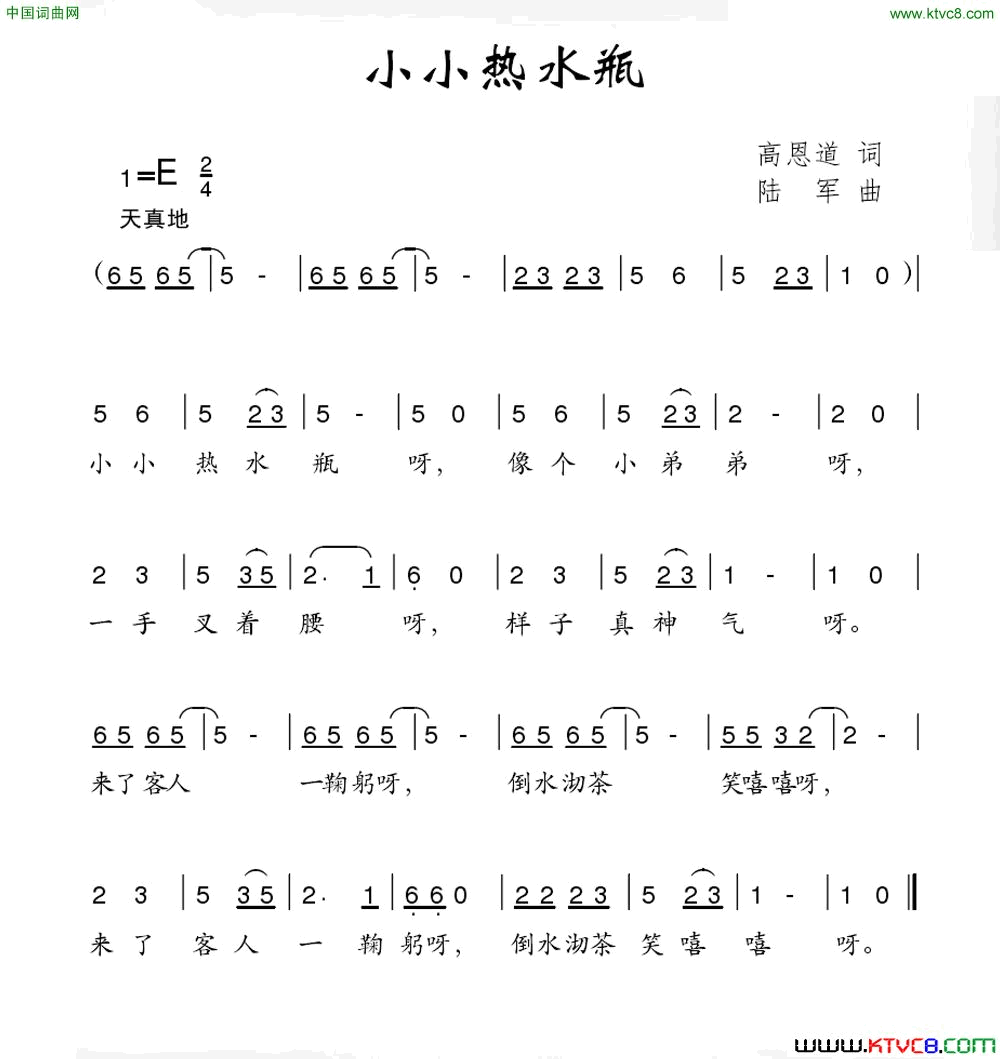 中国词曲网 www.ktvc8.com
小小热水瓶
高恩道 词
1=E 2/4
陆 军 曲
天真地
(65 65 | 5 - | 65 65 | 5 - | 23 23 | 5 6 | 5 23 | 1 0 )|
5 6 | 5 23 | 5 - | 5 0 | 5 6 | 5 23 | 2 - | 2 0 |
小 小 热 水 瓶 呀, 像 个 小 弟 弟 呀,
2 3 | 5 35 | 2. 1 | 6 0 | 2 3 | 5 23 | 1 - | 1 0 |
一 手 叉 着 腰 呀, 样 子 真 神 气 呀。
65 65 | 5 - | 65 65 | 5 - | 65 65 | 5 - | 55 32 | 2 - |
来了客人 一鞠躬呀, 倒水沏茶 笑嘻嘻呀,
2 3 | 5 35 | 2. 1 | 66 0 | 22 23 | 5 23 | 1 - | 1 0 ‖
来 了 客 人 一 鞠 躬呀, 倒水沏茶 笑 嘻 嘻 呀。
www.KTVC8.com